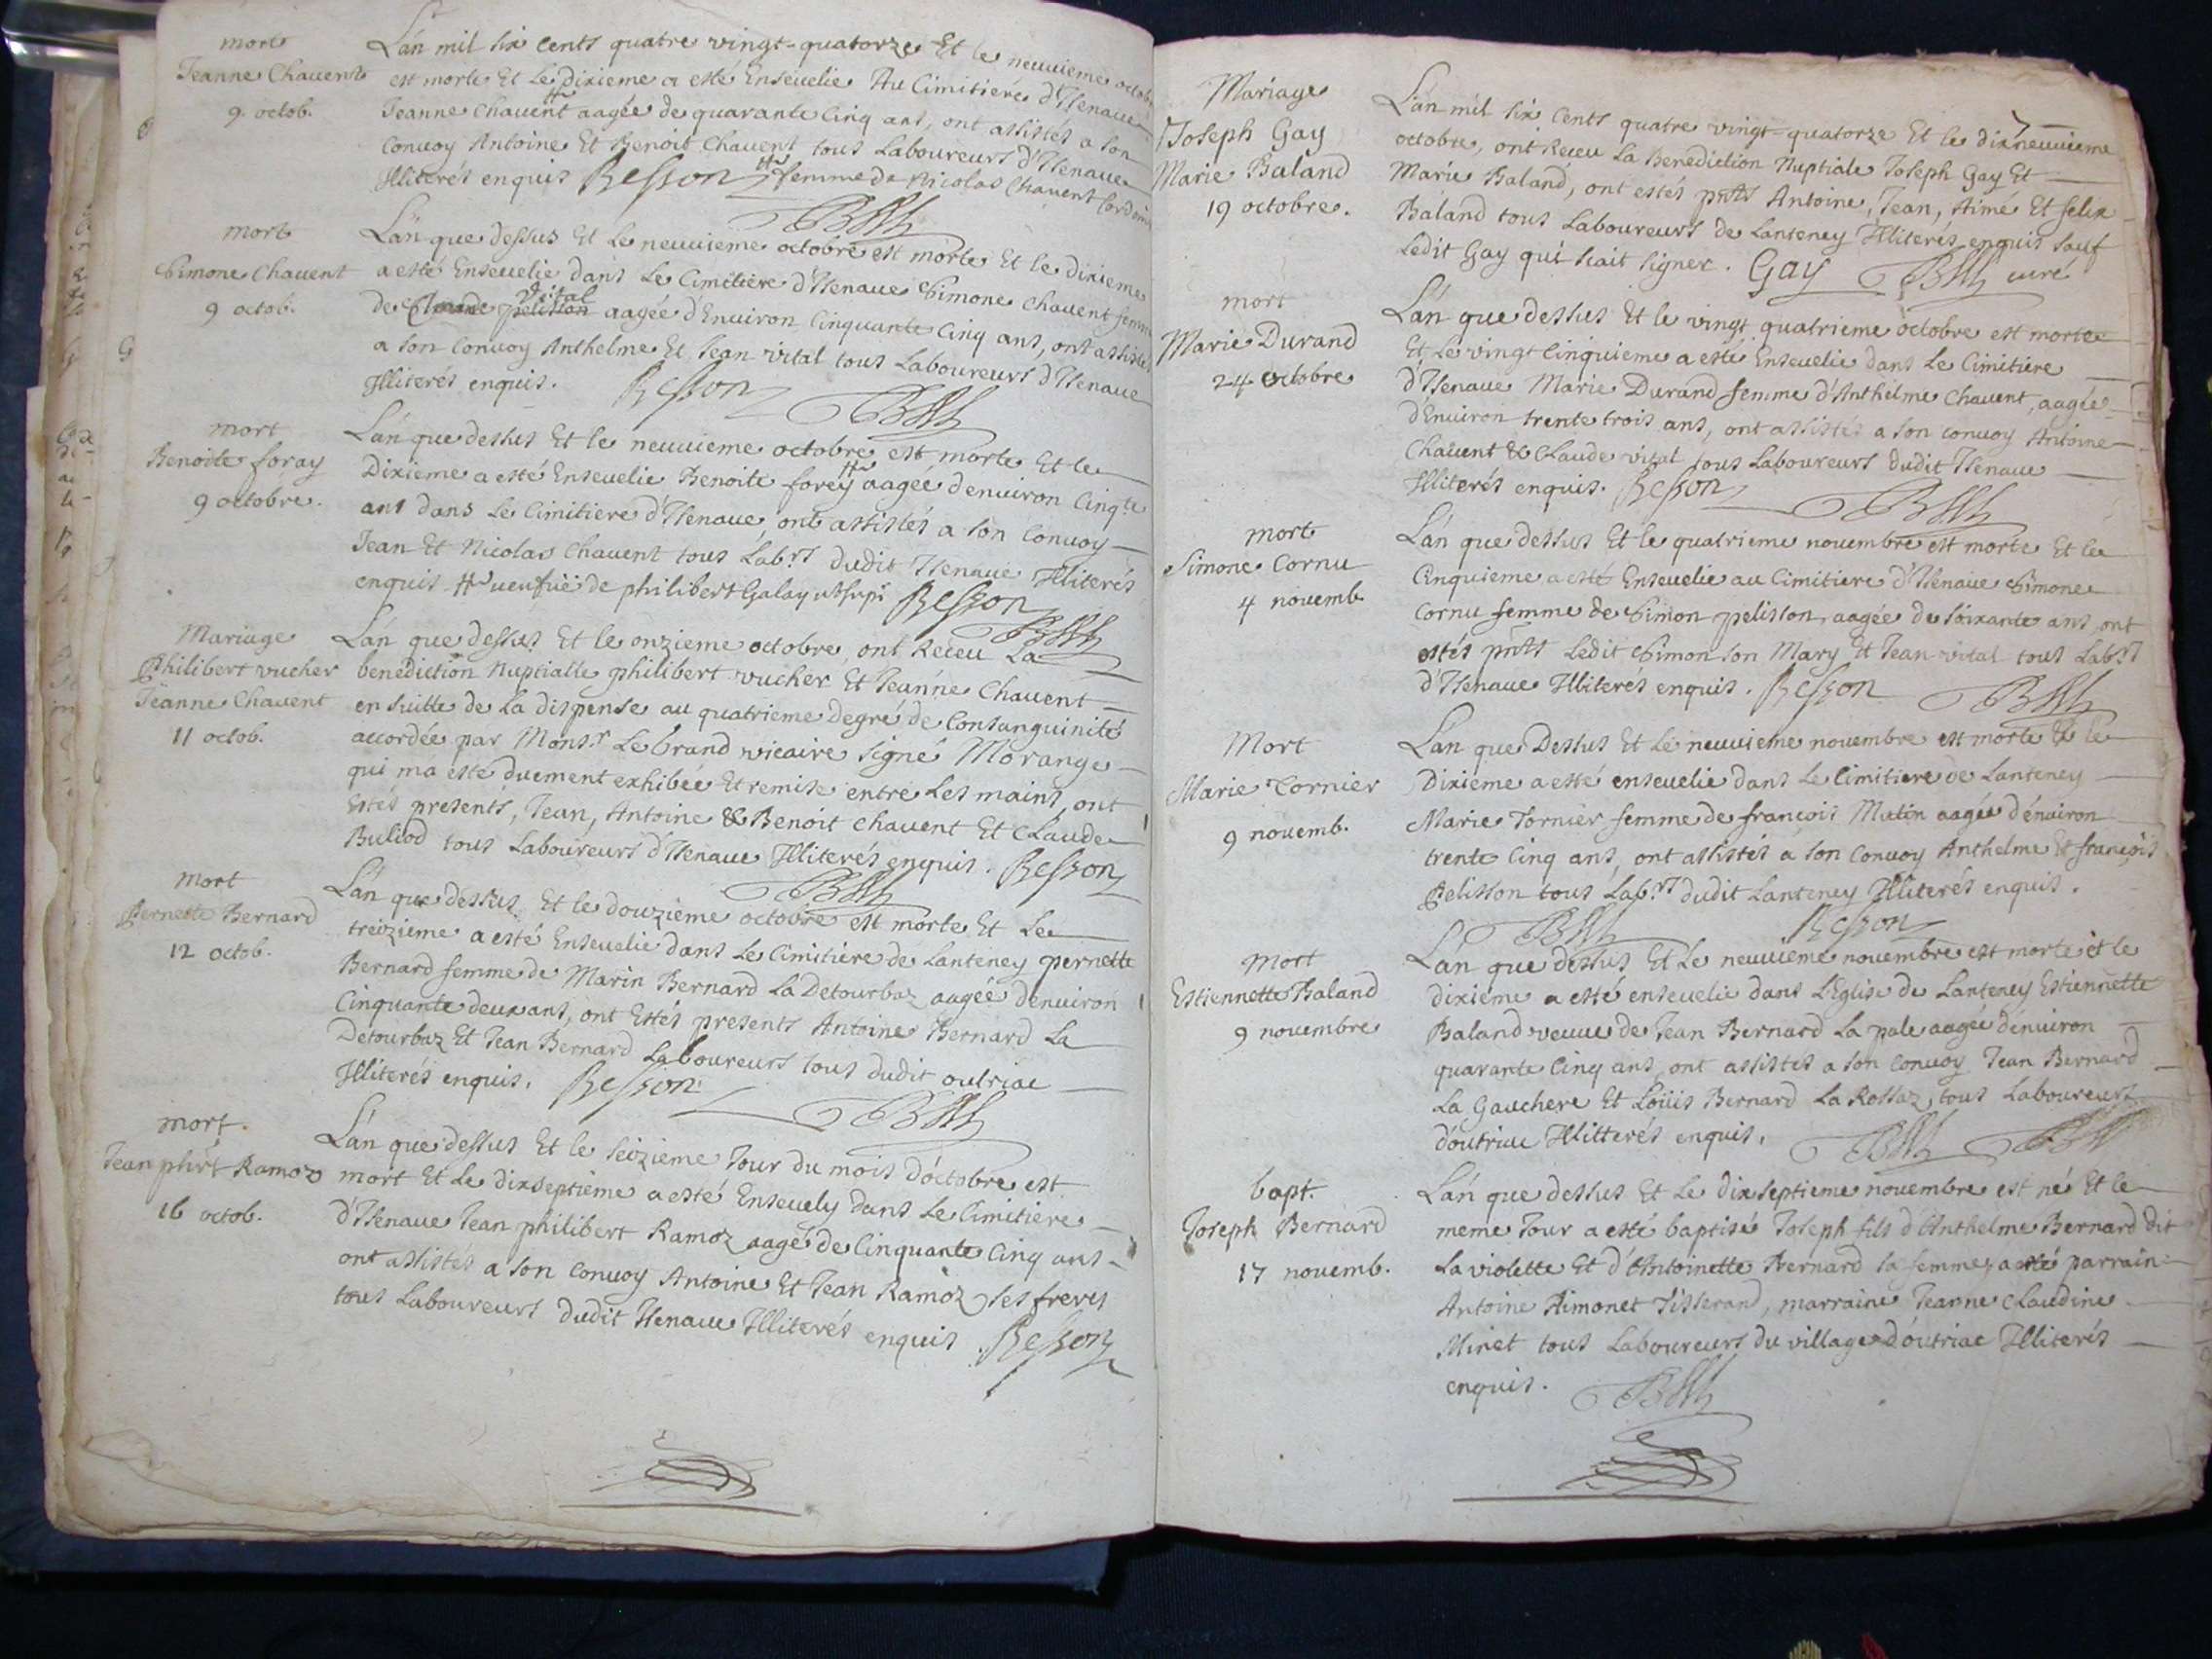 mort
Jeanne Chavent
9. octob.
L'an mil six cents quatre vingt-quatorze Et le neuuieme octob
est morte Et Le Dixieme a esté Enseuelie Au Cimitiere d'Izenaue
Jeanne Chauent aagée de quarante Cinq ans, ont assistés a son
Conuoy Antoine Et Benoit Chauent tous Laboureurs d'Izenaue
Illiterés enquis Besson femme de Nicolas Chauent
mort
Simone Chauent
9 octob.
L'an que dessus Et Le neuuieme octobre est morte Et le dixieme
a esté Enseuelie dans Le Cimitiere d'Izenaue Simone Chauent femme
vital
de Claude pelisson aagée d'Enuiron Cinquante Cinq ans, ont assistés
a son Conuoy Anthelme Et Jean vital tous Laboureurs d'Izenaue
Illiterés enquis. Besson
mort
Benoite foray
9 octobre.
L'an que dessus Et le neuuieme octobre est morte Et le
Dixieme a esté Enseuelie Benoite forey aagée d'enuiron Cinq.te
ans dans Le Cimitiere d'Izenaue, ont assistés a son Conuoy
Jean Et Nicolas Chauent tous Lab.rs dudit Izenaue Illiterés
enquis ueufue de philibert Galay Besson
Mariage
Philibert vucher
Jeanne Chauent
11 octob.
L'an que dessus Et le onzieme octobre, ont Receu La
benediction Nuptialle philibert vucher Et Jeanne Chauent
en suitte de La dispense au quatrieme degré de Consanguinité
accordée par Mons.r Le Grand vicaire signé Morange
qui ma esté duement exhibée Et remise entre Les mains, ont
Estés presents, Jean, Antoine & Benoit Chauent Et Claude
Buliod tous Laboureurs d'Izenaue Illiterés enquis. Besson
mort
Pernette Bernard
12 octob.
L'an que dessus Et le douzieme octobre est morte Et Le
treizieme a esté Enseuelie dans Le Cimitiere de Lanteney pernette
Bernard femme de Marin Bernard La Detourbaz aagée denuiron
Cinquante deux ans, ont Estés presents Antoine Bernard La
Detourbaz Et Jean Bernard Laboureurs tous dudit outriac
Illiterés enquis. Besson
mort.
Jean phirt Ramoz
16 octob.
L'an que dessus Et le seizieme Jour du mois d'octobre est
mort Et Le dixseptieme a esté Enseuely dans Le Cimitiere
d'Izenaue Jean philibert Ramoz aagé de Cinquante Cinq ans
ont assistés a son Conuoy Antoine Et Jean Ramoz ses freres
tous Laboureurs dudit Izenaue Illiterés enquis. Besson
Mariage
Joseph Gay
Marie Baland
19 octobre.
L'an mil six Cents quatre vingt=quatorze Et le dixneuuieme
octobre, ont Receu La Benediction Nuptiale Joseph Gay Et
Marie Baland, ont estés pnts Antoine, Jean, Aimé Et felix
Baland tous Laboureurs de Lanteney Illiterés enquis sauf
Ledit Gay qui scait signer. Gay curé
mort
Marie Durand
24 octobre
L'an que dessus Et le vingt quatrieme octobre est morte
Et Le vingt Cinquieme a esté Enseuelie dans Le Cimitiere
d'Izenaue Marie Durand femme d'Anthelme Chauent, aagée
d'Enuiron trente trois ans, ont assistés a son conuoy Antoine
Chauent & Claude vital tous Laboureurs dudit Izenaue
Illiterés enquis. Besson
mort
Simone Cornu
4 novemb.
L'an que dessus Et le quatrieme nouembre est morte Et le
Cinquieme a esté Enseuelie au Cimitiere d'Izenaue Simone
Cornu femme de Simon pelisson, aagée de soixante ans, ont
estés pnts Ledit Simon son Mary Et Jean vital tous Lab.rs
d'Izenaue Illiteres enquis. Besson
Mort
Marie Tornier
9 novemb.
L'an que Dessus Et Le neuuieme nouembre est morte & le
Dixieme a esté enseuelie dans Le Cimitiere de Lanteney
Marie Tornier femme de francois Mutin aagée d'enuiron
trente Cinq ans, ont assistés a son Conuoy Anthelme Et françois
Pelisson tous Lab.rs dudit Lanteney Illiterés enquis.
Besson
Mort
Estiennette Baland
9 nouembre
L'an que dessus Et Le neuuieme nouembre est morte et le
dixieme a esté enseuelie dans L'Eglise de Lanteney Estiennette
Baland veuue de Jean Bernard La pale aagée d'enuiron
quarante Cinq ans, ont assistés a son Conuoy Jean Bernard
La Gauchere Et Loüis Bernard La Rossaz, tous Laboureurs
d'outriac Illitterés enquis.
bapt.
Joseph Bernard
17 nouemb.
L'an que dessus Et Le dixseptieme nouembre est né Et le
meme Jour a esté baptisé Joseph fils d'Anthelme Bernard dit
La violette Et d'Antoinette Bernard sa femme, a esté parrain
Antoine Aimonet Tisserand, marraine Jeanne Claudine
Minet tous Laboureurs du village d'outriac Illiterés
enquis.